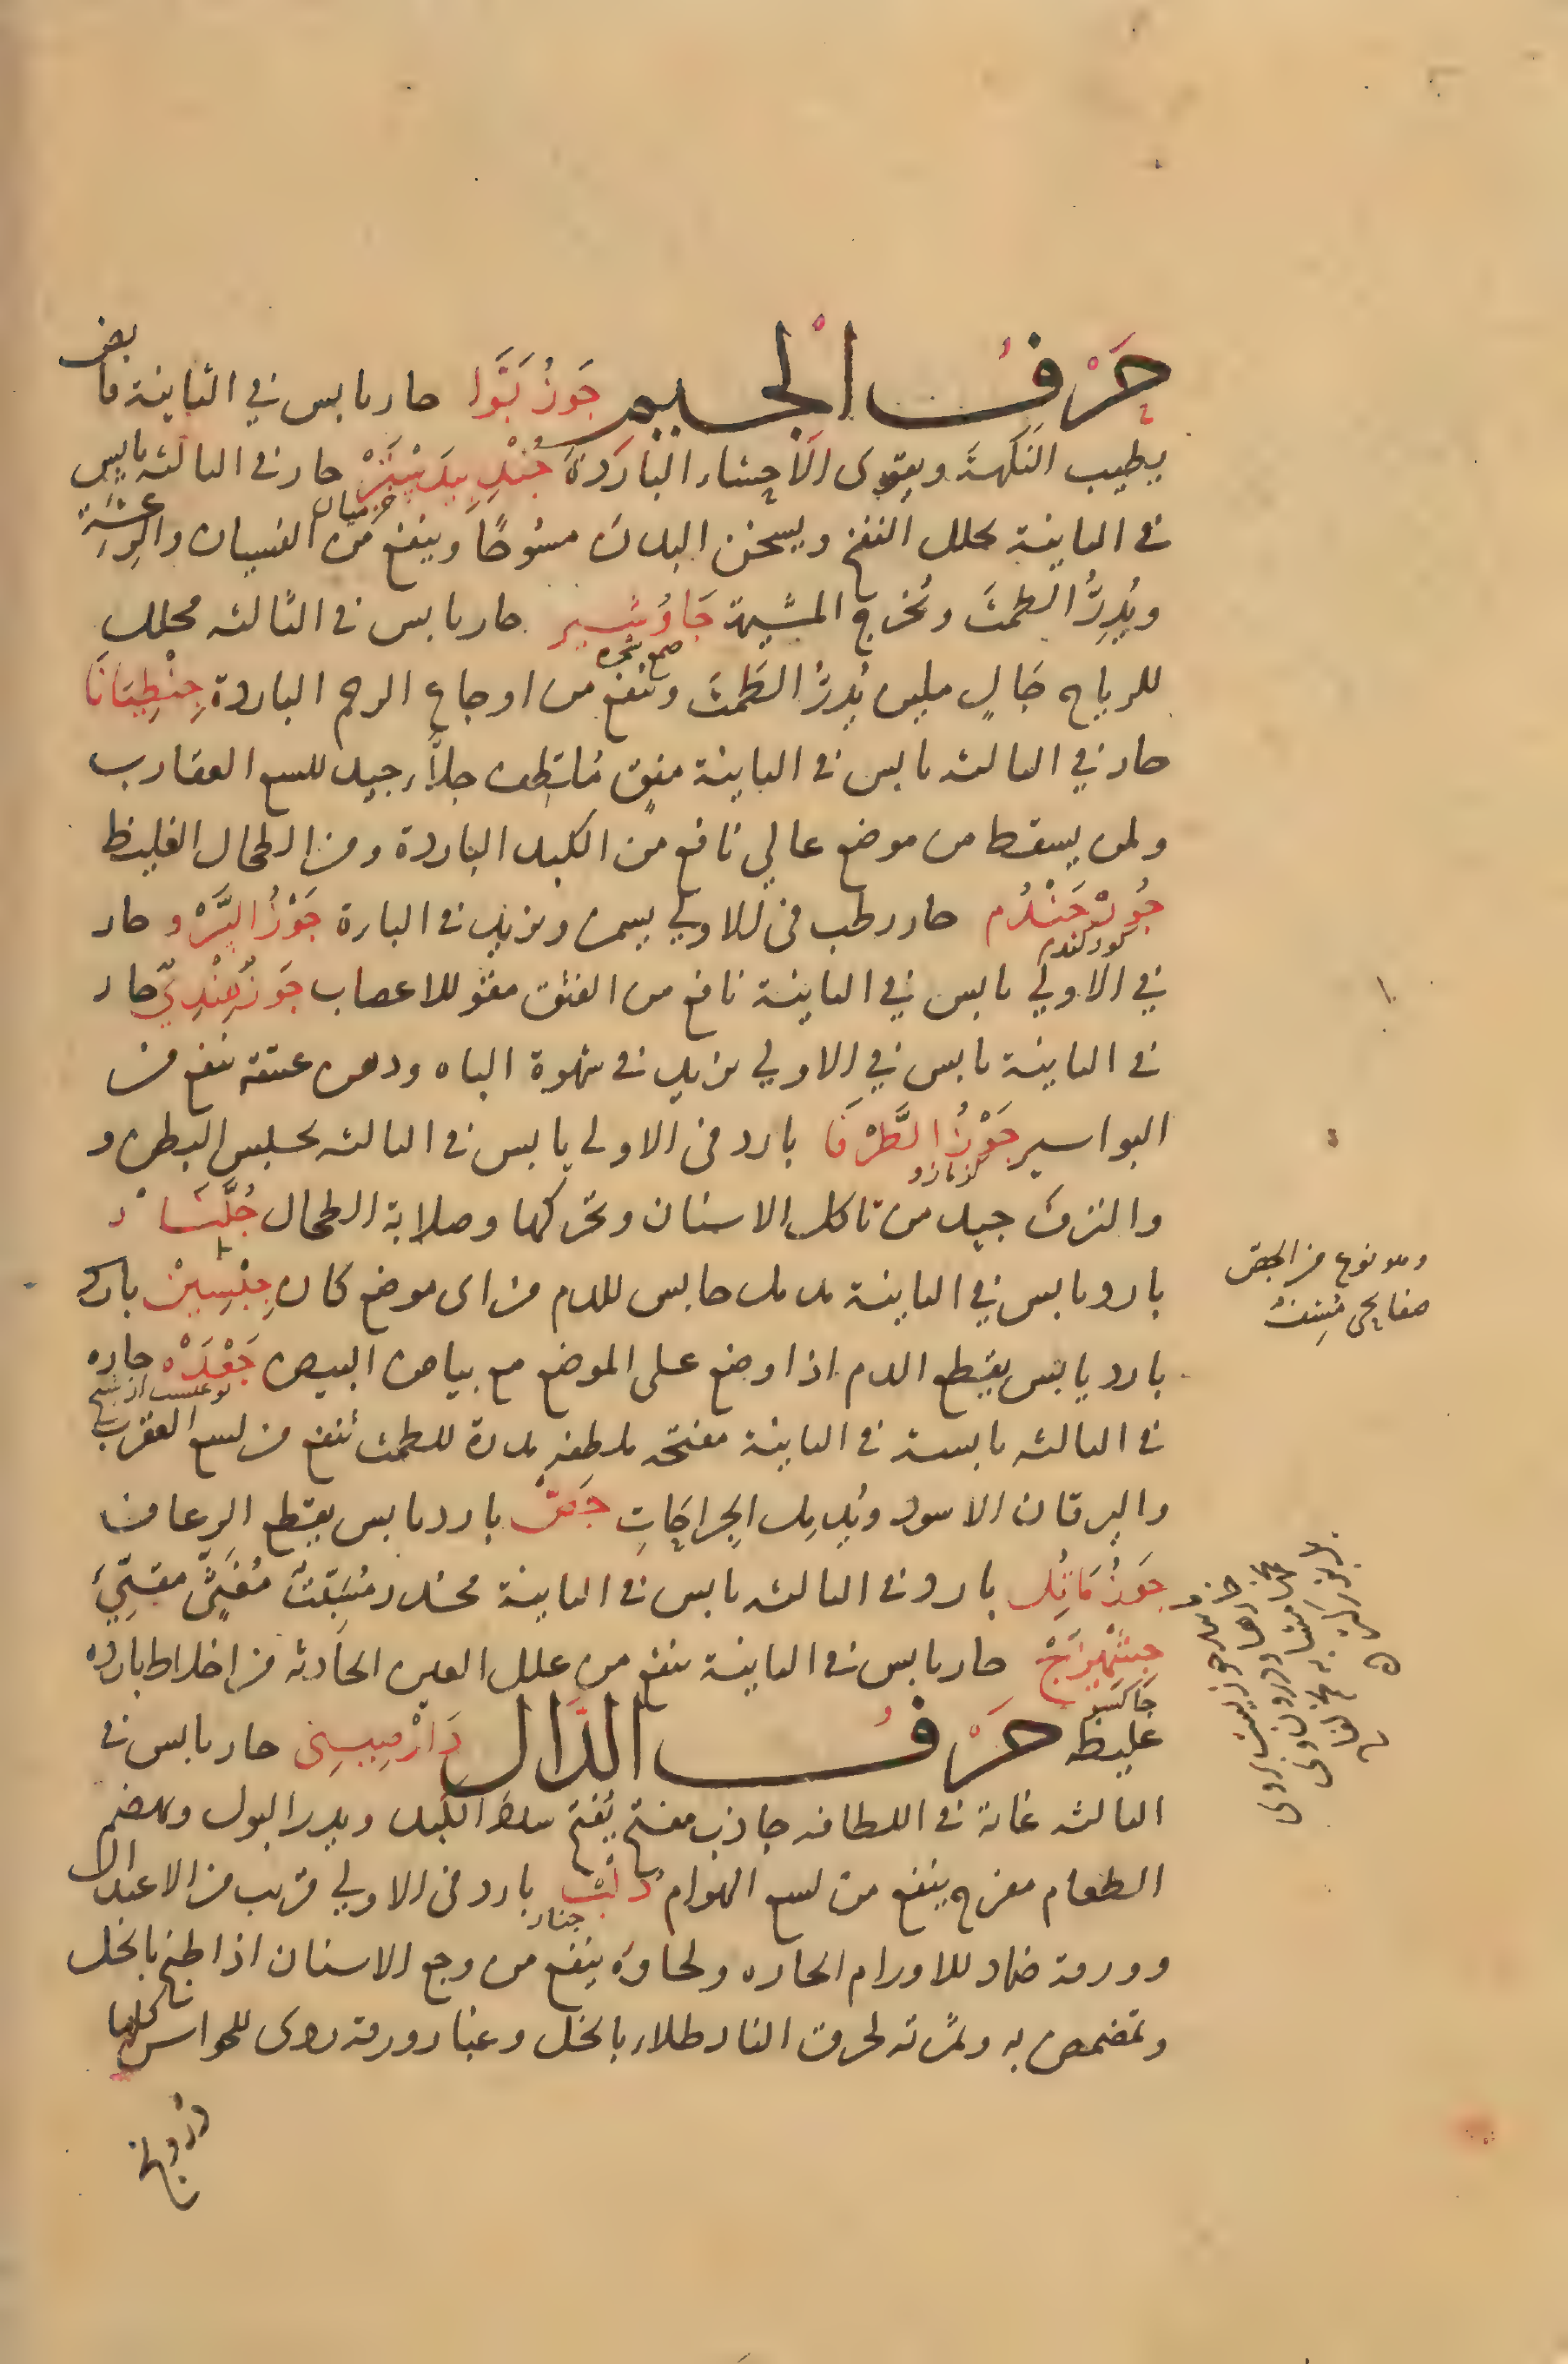 حَرْفُ الْجيم جَوزُ بَوَّا حار يابس في الثانية قابض
يطيب النكهةَ ويقوى الاَحشاء الباردةَ جُندِ بيدَسْتَرْ حار في الثالثه يابس
في الثانية يحلل النفخ ويسخن البدن مسُوحًا وينفع من النسيان والرعشة
ويُدِرُّ الطمثَ وتُخرج المشيمة جَاوُشير حار يابس في الثالثه محلل
للرياح جَالٍ ملين يُدِرُّ الطمثَ وينفع من اوجاع الرحم الباردة جِنْطِيَانَا
صمغ شجره
حار في الثالثه يابس في الثانية جلّاء جيد للسع العقارب
ولمن يسقط من موضع عالي نافع من الكبد الباردة ومن الطحال الغليظ
جُوز جَنْدُم حار رطب في الاولي يسمن ويزيد في الباءة جَوْزُ السَّرْو حار
كوز كندم
في الاولي يابس في الثانية نافع من الفتق مقوٍ للاعصاب جَوزٌ هِنْدِيّ حار
في الثانية يابس في الاولي يزيد في شهوة الباه ودهن عتيقه ينفع من
البواسير جَوْزُ الطَّرْفَا بارد في الاولى يابس في الثالثه يحبس البطن و
كزمازو
والنزف جيد من تاكل الاسنان وتحركها وصلابة الطحال جُلَّنَار
بارد يابس في الثانية يدمل حابس للدم من اى موضع كان جِبْسِينْ بارد
وهو نوع من الجص
صفايحي
بارد يابس يقطع الدم اذا وضع على الموضع مع بياض البيض جَعْدَه حاره
في الثالثه يابسة في الثانية مفتحه ملطفه مدرة للطمث تنفع من لسع العقرب
واليرقان الاسود ويُدمِل الجِراحَاتِ جَصّ بارد يابس يقطع الرعاف
جَوزُ مَاثِل بارد في الثالثه يابس في الثانية مخدر مُسَبِّتٌ مُغَثٍّ مقيّئ
جِشْمِيزَجْ حار يابس في الثانية ينفع من علل العين الحادثه من اخلاط بارده
جاكسو
غليظه حَرْفُ الدَّال دَارْصِيني حار يابس في
الثالثه غاية في اللطافه جاذب مفتح يُفتح سدد الكبد ويدر البول ويهضم
الطعام مفرح ينفع من لسع الهوام دُلْب بارد في الاولي قريب من الاعتدال
جنار
وورقه ضماد للاورام الحاره ولحاوه ينفع من وجع الاسنان اذا طبخ بالخل
وتمضمض به وثمرته لحرق النار طلاء بالخل وغبار ورقه ردى للحواس كلها
درونج